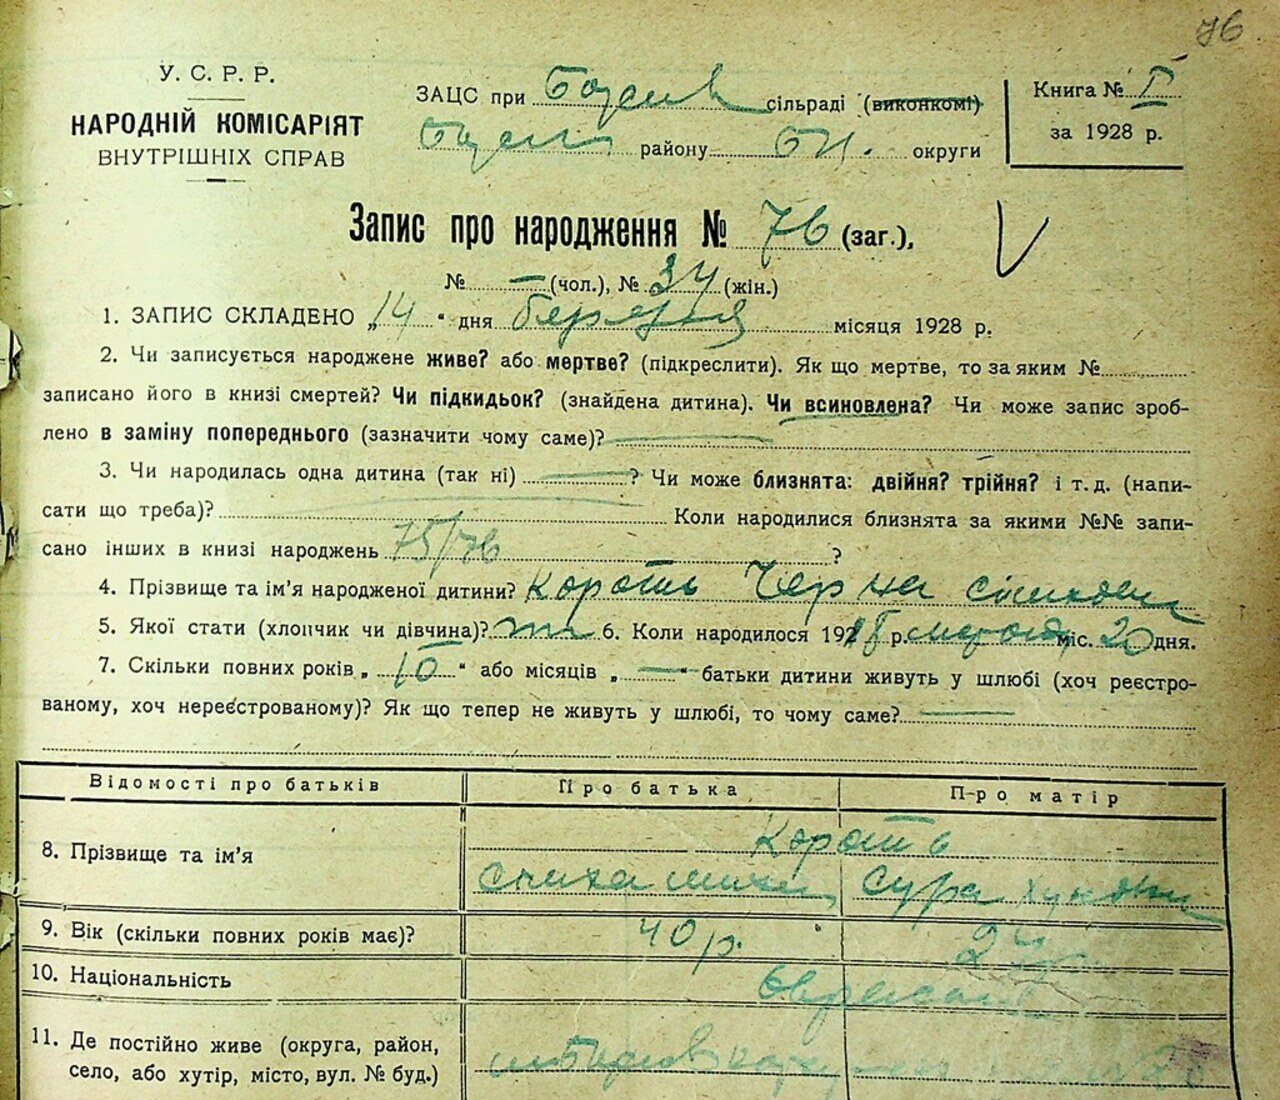 76
У. С. Р. Р.
НАРОДНІЙ КОМІСАРІЯТ
ВНУТРІШНІХ СПРАВ
ЗАЦС при сільраді (виконкомі)
району округи
Книга № I
за 1928 р.
Запис про народження № 76 (заг.),
№ — (чол.), № 34 (жін.)
1. ЗАПИС СКЛАДЕНО „14" дня березня місяця 1928 р.
2. Чи записується народжене живе? або мертве? (підкреслити). Як що мертве, то за яким №
записано його в книзі смертей? Чи підкидьок? (знайдена дитина). Чи всиновлена? Чи може запис зроб-
лено в заміну попереднього (зазначити чому саме)?
3. Чи народилась одна дитина (так ні) ? Чи може близнята: двійня? трійня? і т. д. (напи-
сати що треба)? Коли народилися близнята за якими №№ запи-
сано інших в книзі народжень 75/76 ?
4. Прізвище та ім'я народженої дитини? Короть Черна
5. Якої стати (хлопчик чи дівчина)? 6. Коли народилося 192 р. міс. 20 дня.
7. Скільки повних років „ 10 " або місяців „ — " батьки дитини живуть у шлюбі (хоч реєстро-
ваному, хоч нереєстрованому)? Як що тепер не живуть у шлюбі, то чому саме?
Відомості про батьків Про батька Про матір
8. Прізвище та ім'я Короть
Сура
9. Вік (скільки повних років має)? 40 р.
10. Національність
11. Де постійно живе (округа, район,
село, або хутір, місто, вул. № буд.)